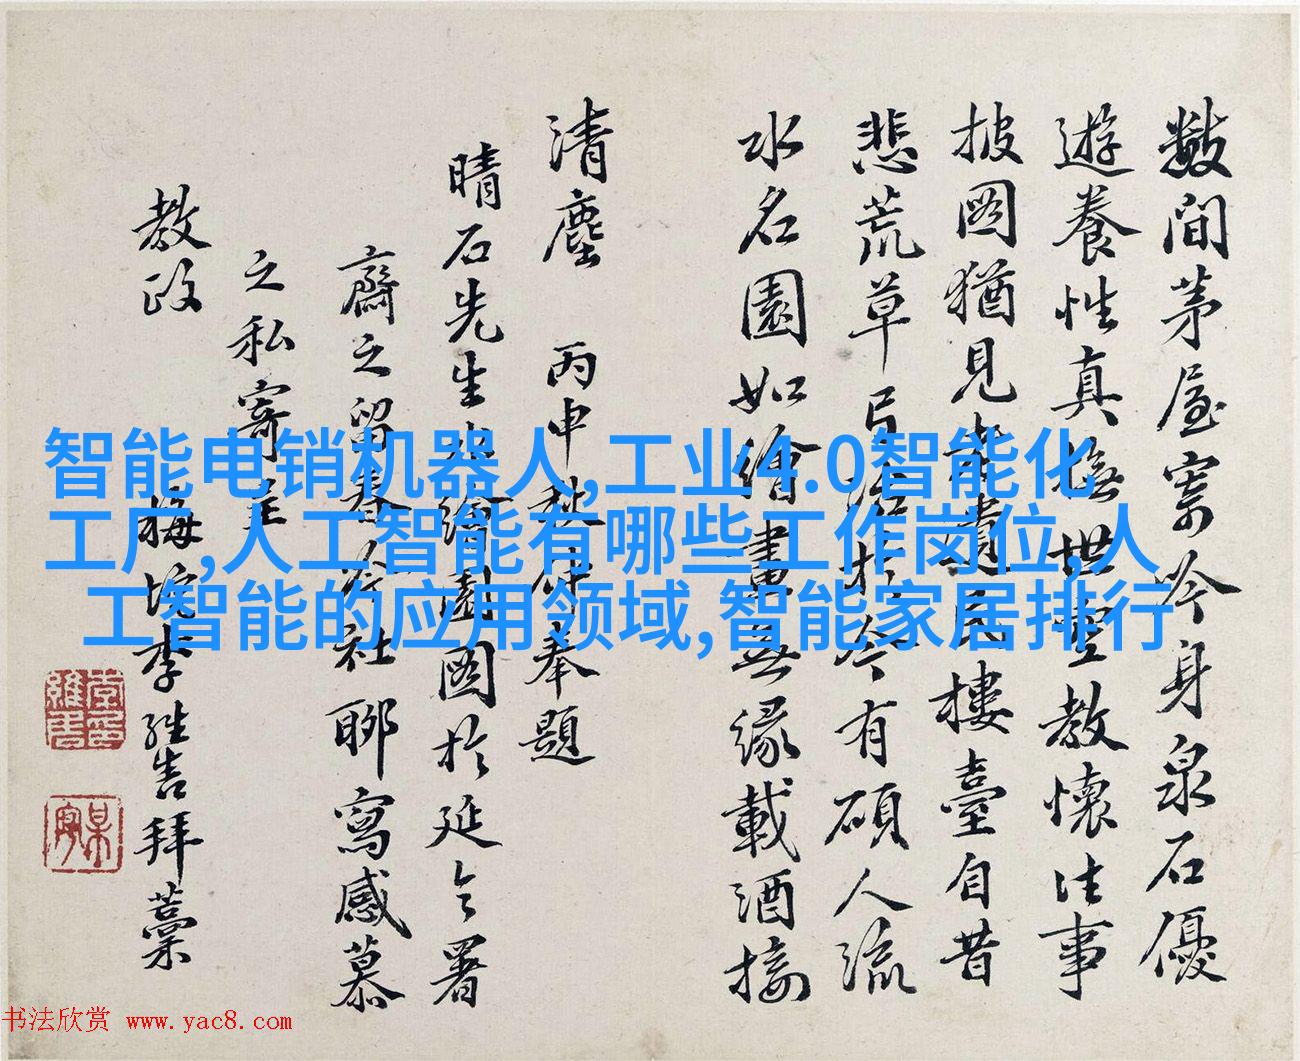 數間茅屋寄吟身泉石優
遊養性真撫世豈教懷往事
披圖猶見遺民樓臺自昔
悲荒草於今有碩人流
水名園如繪畫無緣載酒接
清塵 丙申秋仲奉題
晴石先生水繪園圖於延令署
齋之留春社聊寫感慕
之私寄呈
教政
梅垞李拜藁
智能电销机器人,工业4.0智能化
工厂,人工智能有哪些工作岗位,人
工智能的应用领域,智能家居排行
书法欣赏 www.yac8.com